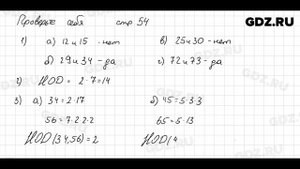 GDZ.RU
Проверьте себя стр 54
1) а) 12 и 15 - нет в) 25 и 30 - нет
б) 29 и 34 - да г) 72 и 73 - да
2) НОД = 2·7=14
3) а) 34 = 2·17 б) 45 = 5·3·3
56 = 7·2·2·2 65 = 5·13
НОД(34,56) = 2 НОД(4
GDZ.RU